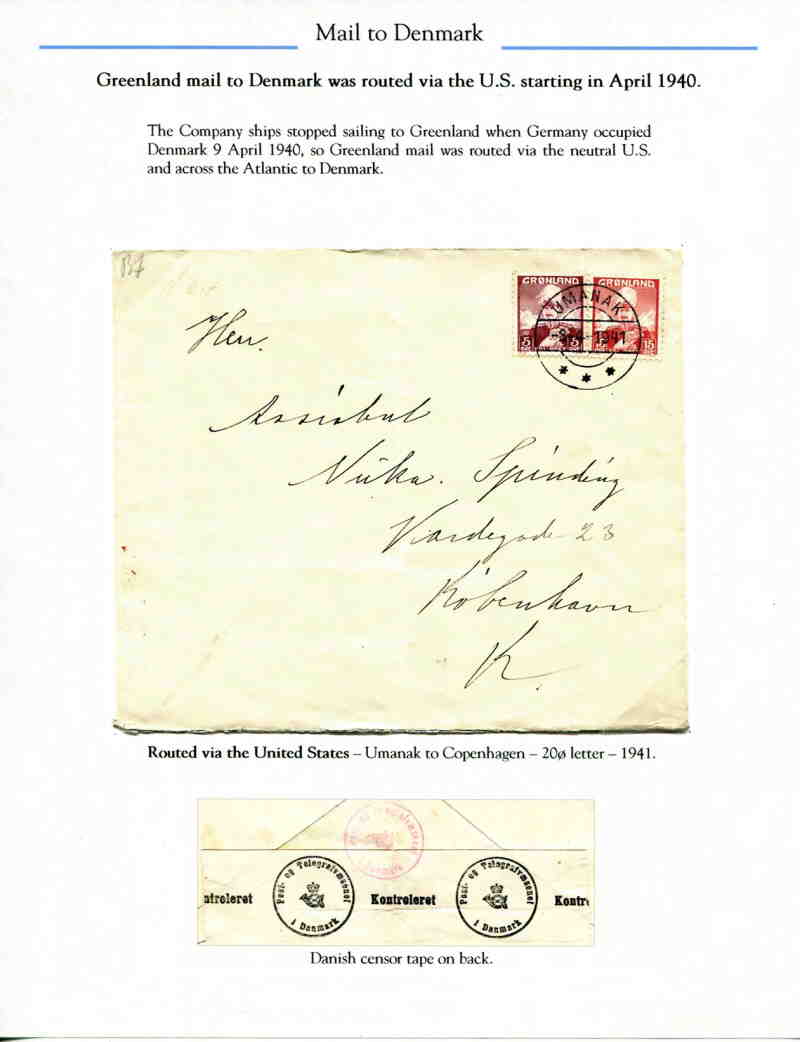 Mail to Denmark
Greenland mail to Denmark was routed via the U.S. starting in April 1940.
The Company ships stopped sailing to Greenland when Germany occupied
Denmark 9 April 1940, so Greenland mail was routed via the neutral U.S.
and across the Atlantic to Denmark.
B7
GRØNLAND GRØNLAND
UMANAK
1941
5 5 15 15
Herr.
Nuka.
23
København
K.
Routed via the United States – Umanak to Copenhagen – 20ø letter – 1941.
Post- og Telegrafvæsenet Post- og Telegrafvæsenet
ntroleret Kontroleret Kontr
i Danmark i Danmark
Danish censor tape on back.